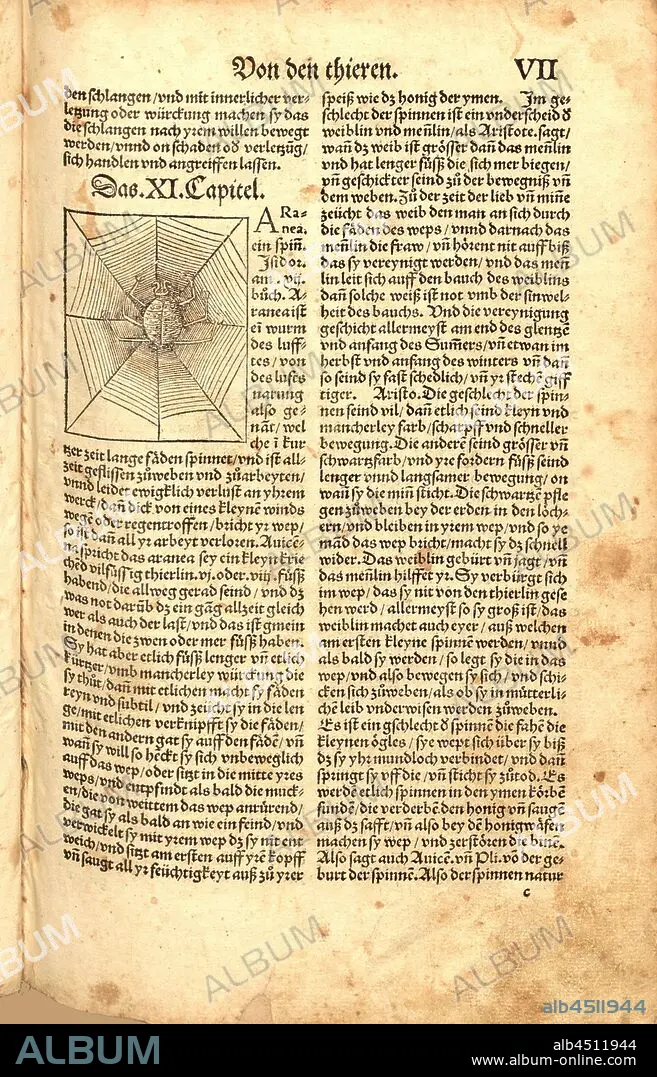 Von den thieren.
VII
den schlangen/vnd mit innerlicher ver-
letzung oder würckung machen sy das
die schlangen nach yrem willen bewegt
werden/vnnd on schaden oď verletzūg/
sich handlen vnd angreiffen lassen.
Das.XI.Capitel.
ARa-
nea.
ein spiñ.
Isidor.
am.vij.
bůch. A-
ranea ist
eī wurm
des luff-
tes/von
des lufts
narung
also ge-
nāt/wel
che ī kur
tzer zeit lange fäden spinnet/vnd ist all-
zeit geflissen zůweben vnd zůarbeyten/
vnnd leidet ewigklich verlust an yhrem
werck/dañ dick von eines kleynē winds
wegē oder regentroffen/bricht yr wep/
so ist dañ all yr arbeyt verloren. Auicē-
na spricht das aranea sey ein kleyn krie
chēd vilfüssig thierlin.vj.oder.viij.füssz
habend/die allweg gerad seind/vnd dz
was not darūb dz ein gāg allzeit gleich
wer als auch der last/vnd das ist gmein
in denen die zwen oder mer füssz haben.
Sy hat aber etlich füssz lenger vñ etlich
kürtzer/vmb mancherley würckūg die
sy thůt/dañ mit etlichen macht sy fäden
reyn vnd subtil/vnd zeücht sy in die len
ge/mit etlichen verknipfft sy die fäden/
mit den andern gat sy auff den fädē/vñ
wañ sy will so hēckt sy sich vnbeweglich
auff das wep/oder sitzt in die mitte yres
weps/vnd entpfindt als bald die muck-
en/die von weittem das wep anrürend/
die gat sy als bald an wie ein feind/vnd
verwickelt sy mit yrem wep dz sy nit ent
weich/vnd sitzt am ersten auff yrē kopff
vñ saugt all yr feüchtigkeyt auß zů yrer
speiß wie dz honig der ymen. Im ge-
schlecht der spinnen ist ein vnderscheid ď
weiblin vnd meñlin/als Aristote.sagt/
wañ dz weib ist grösser dañ das meñlin
vnd hat lenger füssz die sich mer biegen/
vñ geschickter seind zů der bewegniß vñ
dem weben. Zů der zeit der lieb vñ miñe
zeücht das weib den man an sich durch
die fäden des weps/vnnd darnach das
meñlin die fraw/vñ hörent nit auff biß
das sy vereynigt werden/vnd das meñ
lin leit sich auff den bauch des weiblins
dañ solche weiß ist not vmb der sinwel-
heit des bauchs. Vnd die vereynigung
geschicht allermeyst am end des glentzē
vnd anfang des Suṁers/vñ etwan im
herbst vnd anfang des winters vñ dañ
so seind sy fast schedlich/vñ yr stechē giff
tiger. Aristo. Die geschlecht der spin-
nen seind vil/dañ etlich seind kleyn vnd
mancherley farb/scharpff vnd schneller
bewegung. Die anderē seind grösser vñ
schwartzfarb/vnd yre fordern füssz seind
lenger vnnd langsamer bewegung/on
wañ sy die miñ sticht. Die schwartzē pfle
gen zůweben bey der erden in den löch-
ern/vnd bleiben in yrem wep/vnd so ye
mād das wep bricht/macht sy dz schnell
wider. Das weiblin gebürt vñ jagt/vñ
das meñlin hilffet yr. Sy verbürgt sich
im wep/das sy nit von den thierlin gese
hen werd/allermeyst so sy groß ist/das
weiblin machet auch eyer/auß welchen
am ersten kleyne spinnē werden/vnnd
als bald sy werden/so legt sy die in das
wep/vnd also bewegen sy sich/vnd schi-
cken sich zůweben/als ob sy in mütterli-
chē leib vnderwisen werden zůweben.
Es ist ein gschlecht ď spinnē die fahē die
kleynen ögles/sye wept sich über sy biß
dz sy yhr mundloch verbindet/vnd dañ
springt sy vff die/vñ sticht sy zůtod. Es
werdē etlich spinnen in den ymen körbē
funden/die verderbē den honig vñ saugē
auß dz safft/vñ also bey dē honigwäfen
machen sy wep/vnd zerstören die binē.
Also sagt auch Auicē.vñ Pli.vō der ge-
burt der spinnē. Also der spinnen natur
c
alb4511944
ALBUM
alb4511944
www.album-online.com